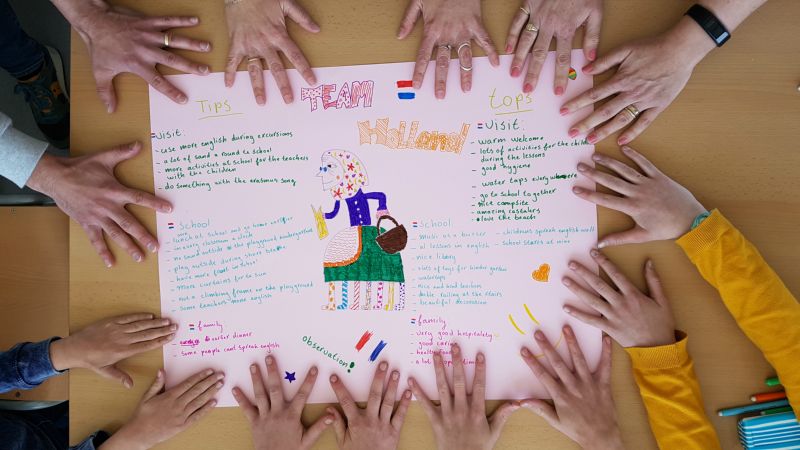 Tips
TEAM
Holland
tops
visit:
- use more english during excursions
- a lot of sand around to school
- more activities at school for the teachers
with the children
- do something with the erasmus song
visit:
- warm welcome
- lots of activities for the child
during the lessons
- good hygiene
- water taps everywhere
- go to school together
- nice campsite
- amazing
- the beach
School
- lunch at school and go home earlier
- in every classroom a clock
- no sand outside the playground kindergarten
- play outside during short
- have more in school
- more curtains for sun
- not a climbing frame on the playground
- some teachers more english
school
- music as a buzzer
- al lessons in english
- nice library
- lots of toys for kinder garden
- watertaps
- nice and kind teachers
- double railing at the stairs
- beautiful decoration
- childrens spreak english well
- school starts at nine
family
- earlier dinner
- some people cant spreak english
family
- very good hospitality
- good care
- healthy food
- a lot of time
observation!